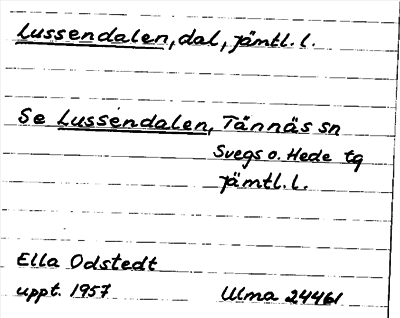 Lussendalen, dal, jämtl. l.
Se Lussendalen, Tännäs sn
Svegs o. Hede tg
jämtl. l.
Ella Odstedt
uppt. 1957 Ulma 24461